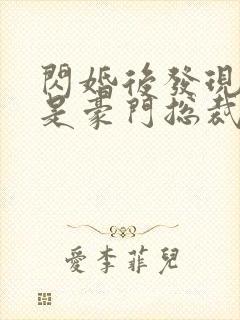 閃婚後發現
是豪門總裁
愛李菲兒